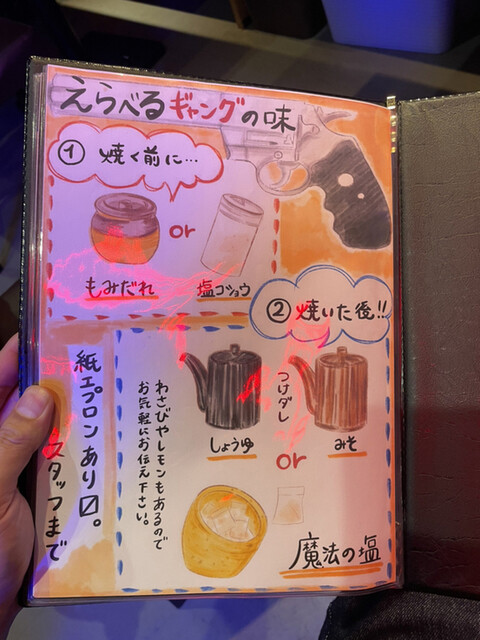 えらべるギャングの味
① 焼く前に…
もみだれ
or
塩コショウ
② 焼いた後!!
つけダレ
しょうゆ
みそ
or
魔法の塩
わさびやレモンもあるので
お気軽にお伝え下さい。
紙エプロンあり〼。
スタッフまで